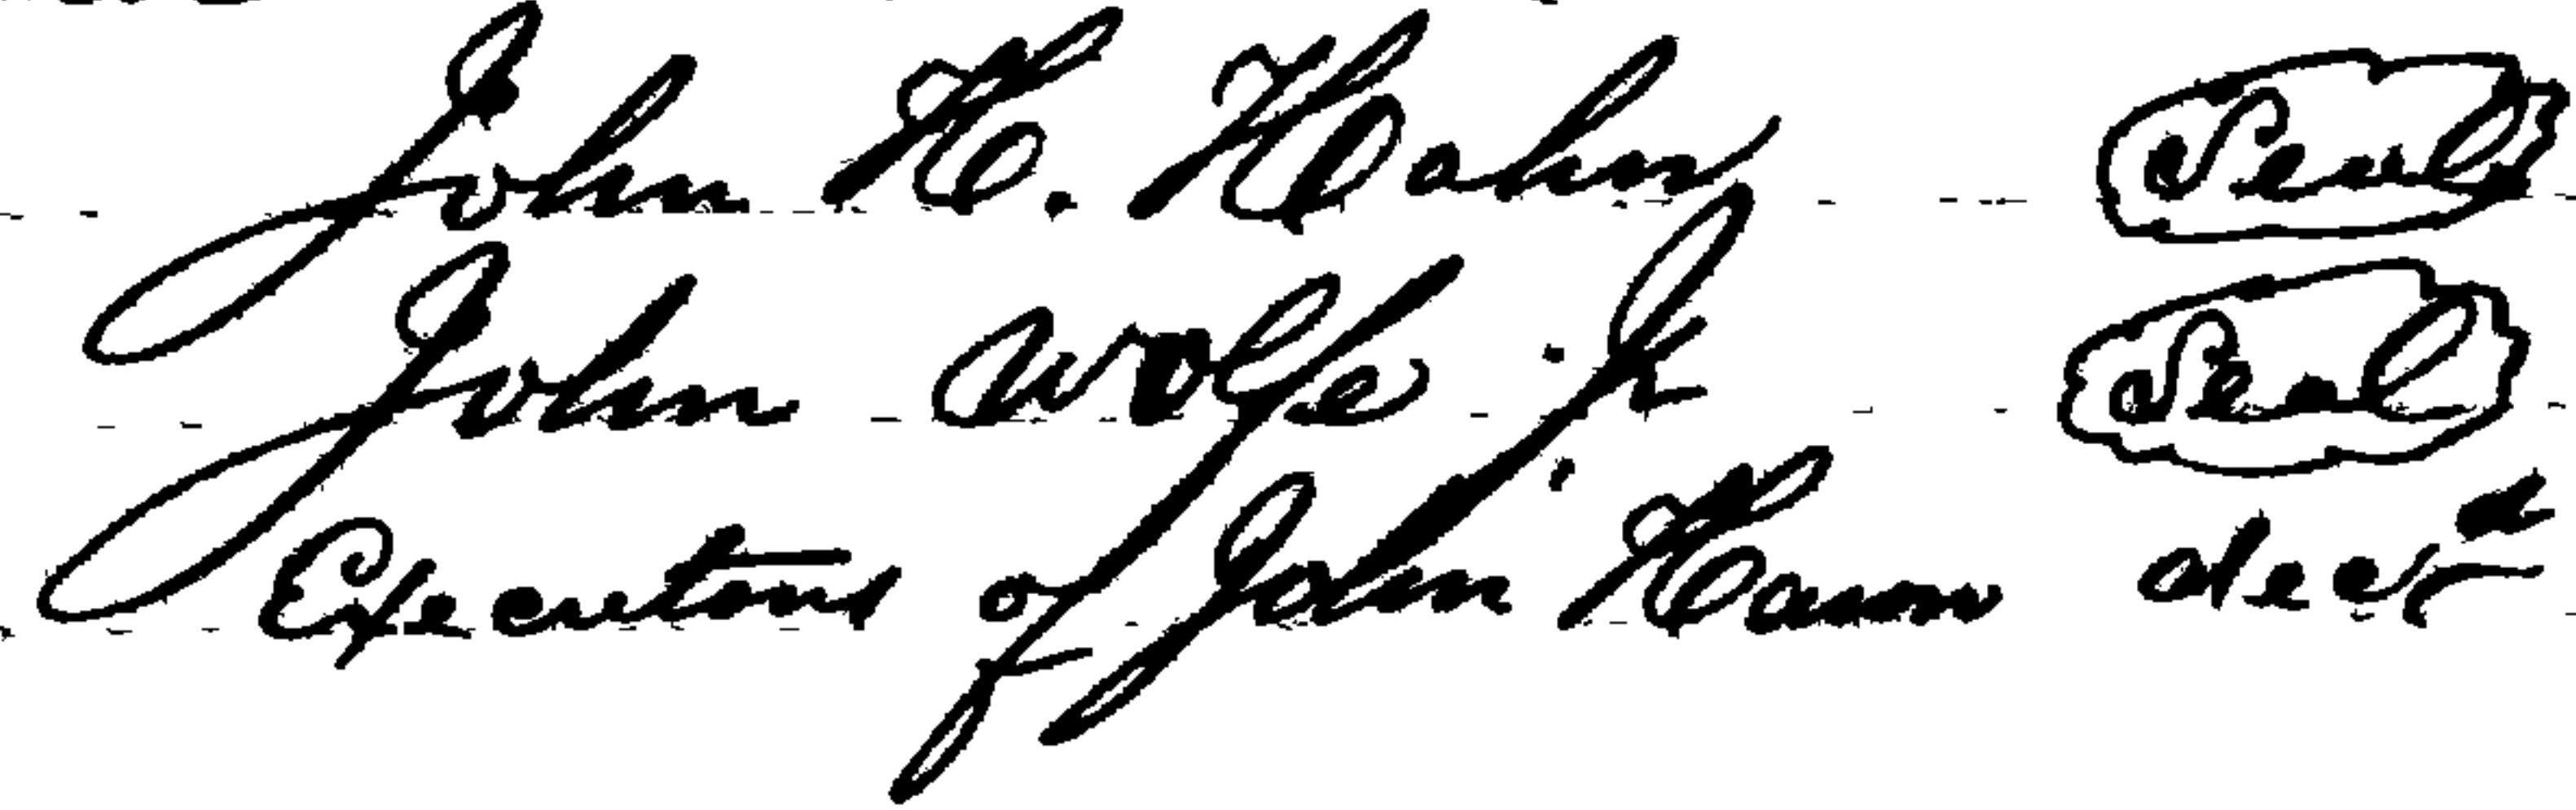 John H. Hahn Seal
John Wolfe Jr Seal
Executors of John Hann decd